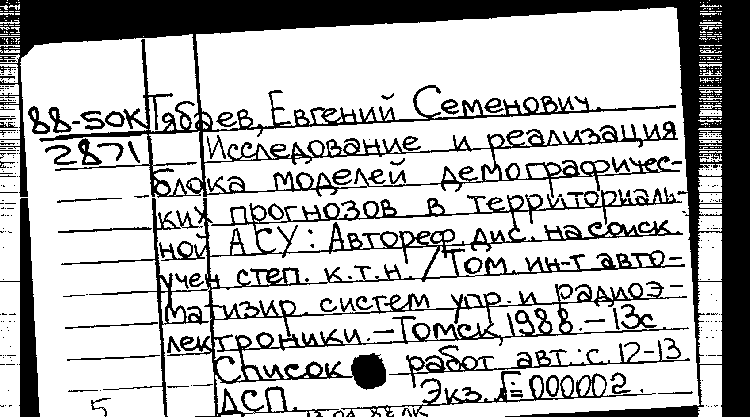 88-50К Тябаев, Евгений Семенович.
2871 Исследование и реализация
блока моделей демографичес-
ких прогнозов в территориаль-
ной АСУ: Автореф. дис. на соиск.
учен степ. к.т.н. / Том. ин-т авто-
матизир. систем упр. и радиоэ-
лектроники. – Томск, 1988. – 13с.
Список работ авт.: с. 12-13.
ДСП. Экз. № 000002.
5